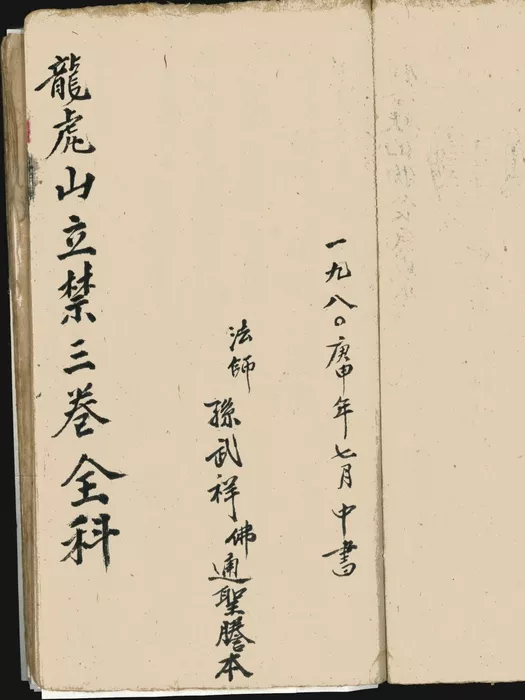 一九八〇庚申年七月中書
法師孫武祥佛通聖謄本
龍虎山立禁三巻全科